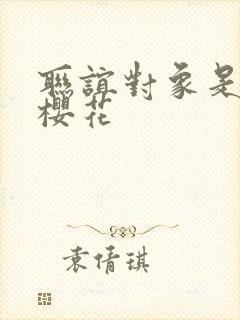 聯誼對象是
櫻花
袁倩琪